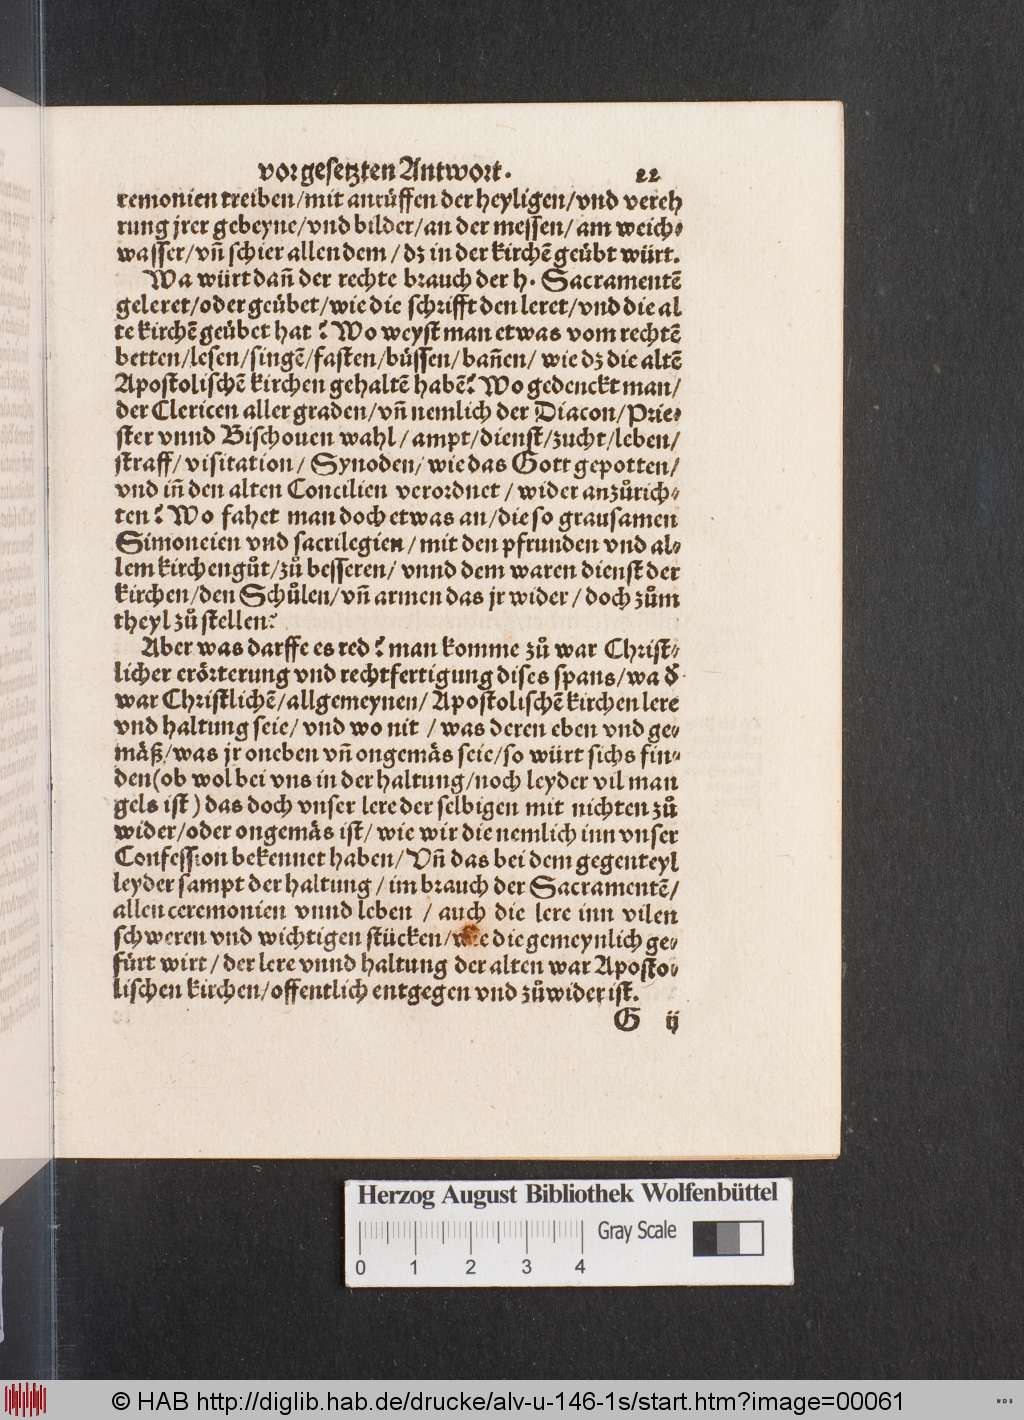 vorgesetzten Antwort. 22
remonien treiben/mit anrüffen der heyligen/vnd vereh
rung jrer gebeyne/vnd bilder/an der messen/am weich⸗
wasser/vñ schier allen dem/dz in der kirchẽ geübt würt.
Wa würt dañ der rechte brauch der h. Sacramentẽ
geleret/oder geübet/wie die schrifft den leret/vnd die al
te kirchẽ geübet hat? Wo weyst man etwas vom rechtẽ
betten/lesen/singẽ/fasten/büssen/bañen/wie dz die altẽ
Apostolischẽ kirchen gehaltẽ habẽ? Wo gedenckt man/
der Clericen aller graden/vñ nemlich der Diacon/Prie⸗
ster vnnd Bischouen wahl/ampt/dienst/zucht/leben/
straff/visitation/Synoden/wie das Gott gepotten/
vnd iñ den alten Concilien verordnet/wider anzůrich⸗
ten? Wo fahet man doch etwas an/die so grausamen
Simoneien vnd sacrilegien/mit den pfrunden vnd al⸗
lem kirchengůt/zů besseren/vnnd dem waren dienst der
kirchen/den Schůlen/vñ armen das jr wider/doch zům
theyl zů stellen?
Aber was darffe es red? man komme zů war Christ⸗
licher erörterung vnd rechtfertigung dises spans/wa d̃
war Christlichẽ/allgemeynen/Apostolischẽ kirchen lere
vnd haltung seie/vnd wo nit/was deren eben vnd ge⸗
mäß/was jr oneben vñ ongemäs seie/so würt sichs fin⸗
den (ob wol bei vns in der haltung/noch leyder vil man
gels ist) das doch vnser lere der selbigen mit nichten zů
wider/oder ongemäs ist/wie wir die nemlich inn vnser
Confession bekennet haben/Vñ das bei dem gegenteyl
leyder sampt der haltung/im brauch der Sacramentẽ/
allen ceremonien vnnd leben/auch die lere inn vilen
schweren vnd wichtigen stücken/wie die gemeynlich ge⸗
fürt wirt/der lere vnnd haltung der alten war Aposto⸗
lischen kirchen/offentlich entgegen vnd zůwider ist.
G ij
Herzog August Bibliothek Wolfenbüttel
Gray Scale
0 1 2 3 4
© HAB http://diglib.hab.de/drucke/alv-u-146-1s/start.htm?image=00061